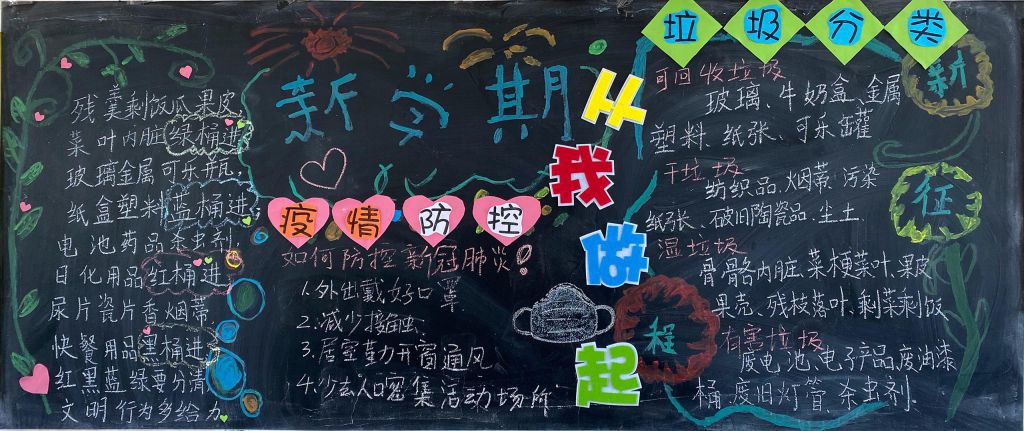 残羹剩饭瓜果皮
菜叶内脏绿桶进
玻璃金属可乐瓶
纸盒塑料蓝桶进
电池药品杀虫剂
日化用品红桶进
尿片瓷片香烟蒂
快餐用品黑桶进
红黑蓝绿要分清
文明行为多给力
新学期
疫情防控
如何防控新冠肺炎!
1.外出戴好口罩
2.减少接触、
3.居室勤开窗通风
4.少去人口密集活动场所
从我做起
垃圾分类
可回收垃圾
玻璃、牛奶盒、金属
塑料、纸张、可乐罐
干垃圾
纺织品、烟蒂、污染
纸张、破旧陶瓷品、尘土
湿垃圾
骨骼内脏、菜梗菜叶、果皮
果壳、残枝落叶、剩菜剩饭
有害垃圾
废电池、电子产品、废油漆
桶、废旧灯管、杀虫剂.
新征程